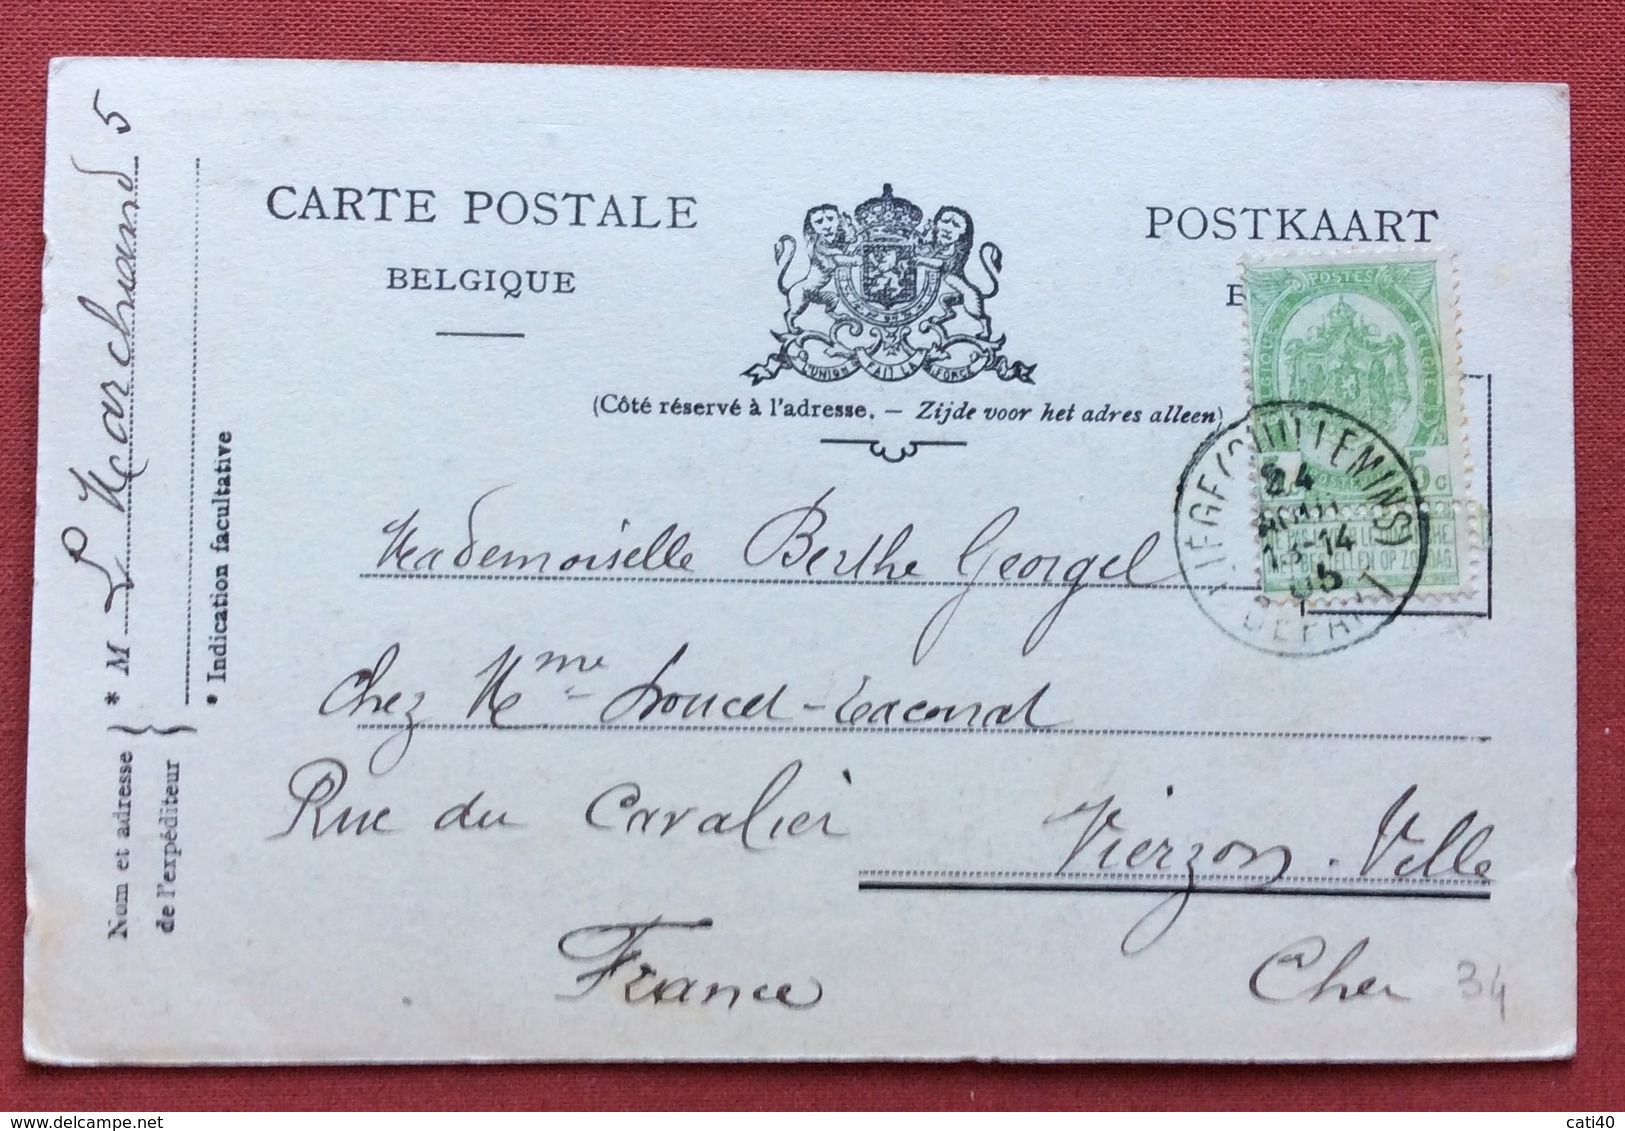 CARTE POSTALE
BELGIQUE
POSTKAART
B
L'UNION FAIT LA FORCE
(Côté réservé à l'adresse. — Zijde voor het adres alleen)
POSTES
BELGIQUE
BELGIË
5c
NE PAS LIVRER LE DIMANCHE
NIET BESTELLEN OP ZONDAG
LIEGE (GUILLEMINS)
24
AOUT
13-14
05
DEPART
Mademoiselle Berthe Georgel
Chez Mme
Rue du Cavalier
Vierzon-Ville
France
Cher
34
Nom et adresse
de l'expéditeur
* M L Marchand 5
* Indication facultative
cati40